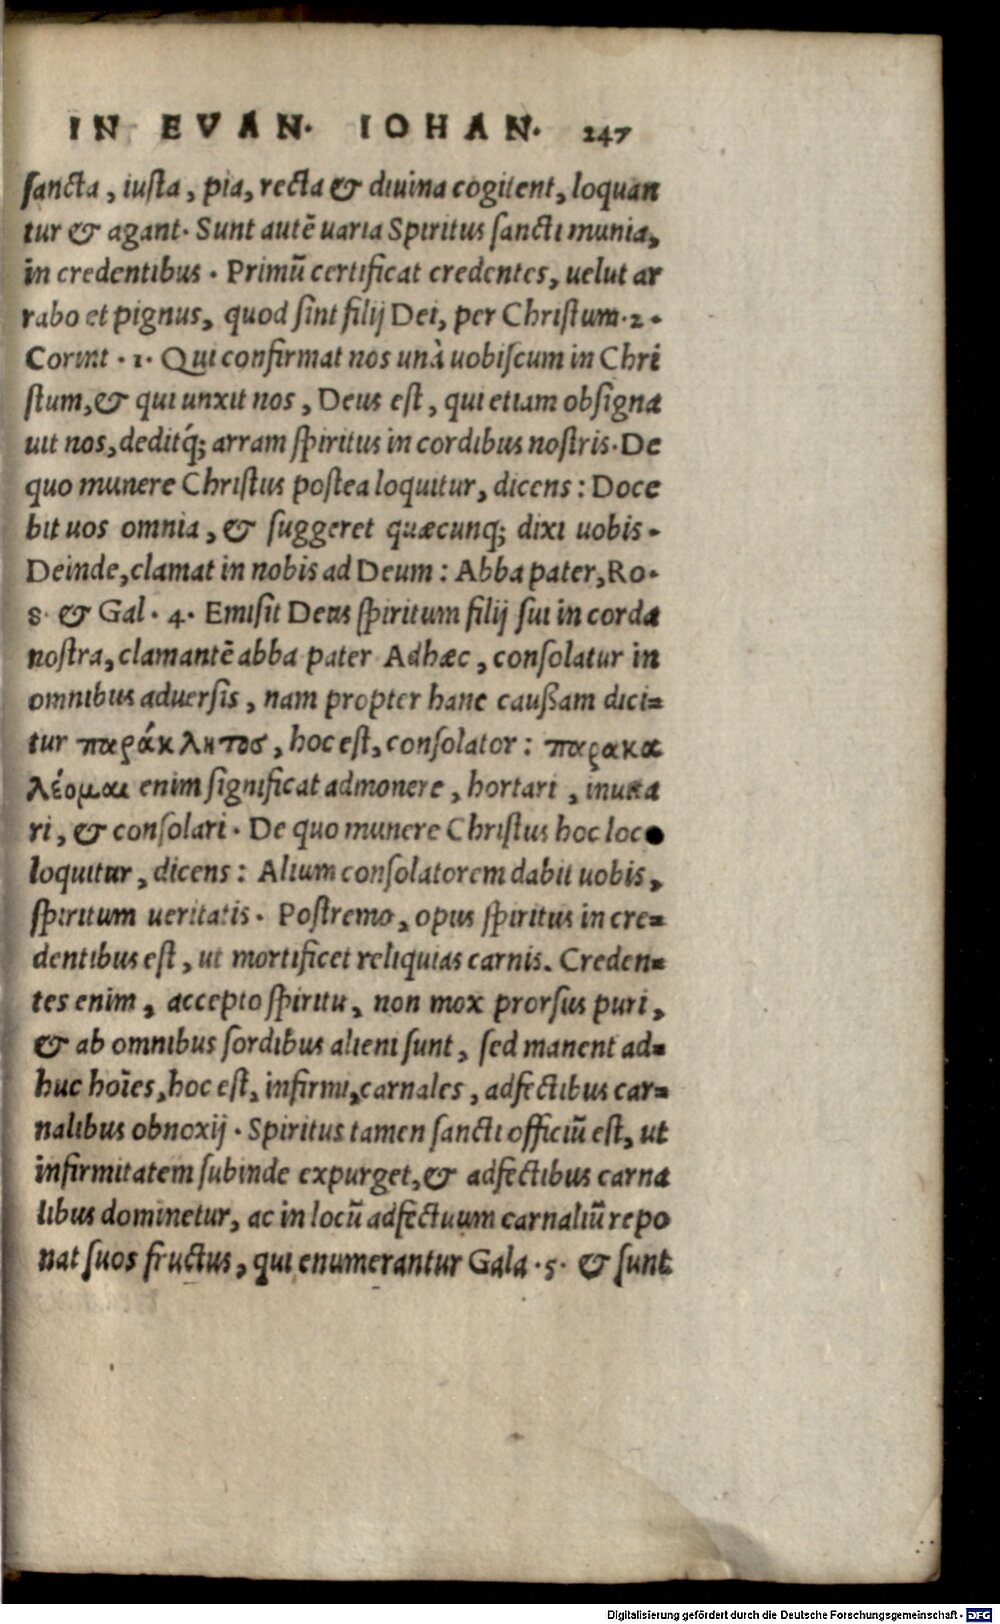 IN EVAN. IOHAN. 247
sancta, iusta, pia, recta & diuina cogitent, loquan
tur & agant. Sunt autē uaria Spiritus sancti munia,
in credentibus. Primū certificat credentes, uelut ar
rabo et pignus, quod sint filij Dei, per Christum. 2.
Corint. 1. Qui confirmat nos unà uobiscum in Chri
stum, & qui unxit nos, Deus est, qui etiam obsigna
uit nos, deditq́; arram spiritus in cordibus nostris. De
quo munere Christus postea loquitur, dicens: Doce
bit uos omnia, & suggeret quæcunq; dixi uobis.
Deinde, clamat in nobis ad Deum: Abba pater, Ro.
8. & Gal. 4. Emisit Deus spiritum filij sui in corda
nostra, clamantē abba pater Adhæc, consolatur in
omnibus aduersis, nam propter hanc caußam dici=
tur παράκλητοσ, hoc est, consolator: παρακα
λέομαι enim significat admonere, hortari, inuita
ri, & consolari. De quo munere Christus hoc loco
loquitur, dicens: Alium consolatorem dabit uobis,
spiritum ueritatis. Postremo, opus spiritus in cre=
dentibus est, ut mortificet reliquias carnis. Creden=
tes enim, accepto spiritu, non mox prorsus puri,
& ab omnibus sordibus alieni sunt, sed manent ad=
huc hoīes, hoc est, infirmi, carnales, adfectibus car=
nalibus obnoxij. Spiritus tamen sancti officiū est, ut
infirmitatem subinde expurget, & adfectibus carna
libus dominetur, ac in locū adfectuum carnaliū repo
nat suos fructus, qui enumerantur Gala. 5. & sunt
Digitalisierung gefördert durch die Deutsche Forschungsgemeinschaft - DFG